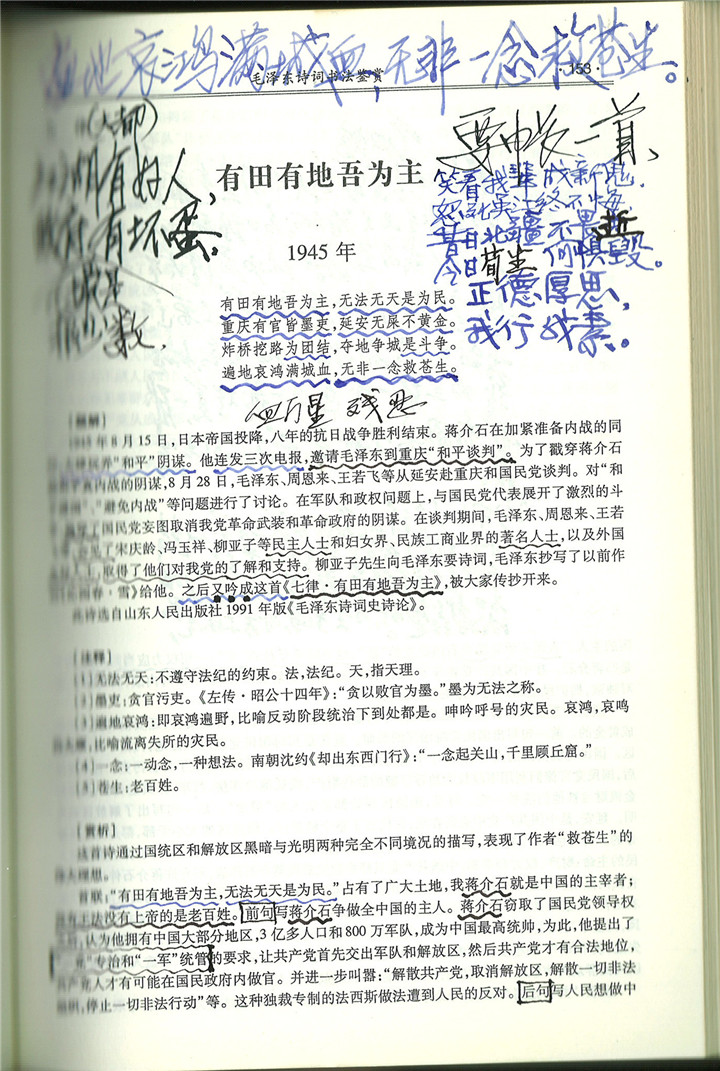 遍地哀鸿满城血,无非一念救苍生。
毛泽东诗词书法鉴赏
·153·
有好人,
有坏蛋。
数.
一首,
笑看我辈成新鬼.
昔日北疆不畏逝
今日荀生何惧毁。
正德厚思,
我行我素。
有田有地吾为主
1945 年
有田有地吾为主,无法无天是为民。
重庆有官皆墨吏,延安无屎不黄金。
炸桥挖路为团结,夺地争城是斗争。
遍地哀鸿满城血,无非一念救苍生。
[题解]
1945年8月15日,日本帝国投降,八年的抗日战争胜利结束。蒋介石在加紧准备内战的同
“和平”阴谋。他连发三次电报,邀请毛泽东到重庆“和平谈判”。为了戳穿蒋介石
内战的阴谋,8月28日,毛泽东、周恩来、王若飞等从延安赴重庆和国民党谈判。对“和
”、“避免内战”等问题进行了讨论。在军队和政权问题上,与国民党代表展开了激烈的斗
了国民党妄图取消我党革命武装和革命政府的阴谋。在谈判期间,毛泽东、周恩来、王若
会见了宋庆龄、冯玉祥、柳亚子等民主人士和妇女界、民族工商业界的著名人士,以及外国
取得了他们对我党的了解和支持。柳亚子先生向毛泽东要诗词,毛泽东抄写了以前作
春·雪》给他。之后又吟成这首《七律·有田有地吾为主》,被大家传抄开来。
此诗选自山东人民出版社1991年版《毛泽东诗词史诗论》。
[注释]
(1)无法无天:不遵守法纪的约束。法,法纪。天,指天理。
(2)墨吏:贪官污吏。《左传·昭公十四年》:“贪以败官为墨。”墨为无法之称。
(3)遍地哀鸿:即哀鸿遍野,比喻反动阶段统治下到处都是。呻吟呼号的灾民。哀鸿,哀鸣
,比喻流离失所的灾民。
(4)一念:一动念,一种想法。南朝沈约《却出东西门行》:“一念起关山,千里顾丘窟。”
(5)苍生:老百姓。
[赏析]
这首诗通过国统区和解放区黑暗与光明两种完全不同境况的描写,表现了作者“救苍生”的
理想。
首联:“有田有地吾为主,无法无天是为民。”占有了广大土地,我蒋介石就是中国的主宰者;
没有上帝的是老百姓。前句写蒋介石争做全中国的主人。蒋介石窃取了国民党领导权
认为他拥有中国大部分地区,3亿多人口和800万军队,成为中国最高统帅,为此,他提出了
”专治和“一军”统管的要求,让共产党首先交出军队和解放区,然后共产党才有合法地位,
共产党人才有可能在国民政府内做官。并进一步叫嚣:“解散共产党,取消解放区,解散一切非法
组织,停止一切非法行动”等。这种独裁专制的法西斯做法遭到人民的反对。后句写人民想做中